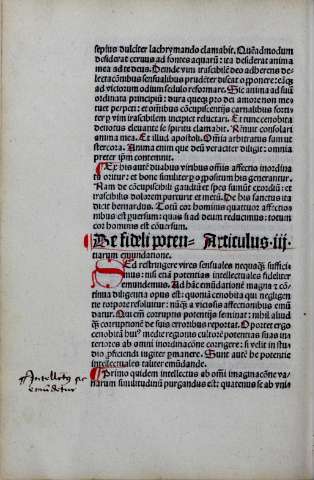 sepius dulciter lachrymando clamabit. Quēadmodum
desiderat ceruus ad fontes aquarū: ita desiderat anima
mea ad te deus. Deinde vim irascibilē deo adherens de-
lectatiōnibus sensualibus prudēter discat opponere: eāq;
ad victorum odium sedulo reformare. Sic anima ad suū
ordinata principiū: dura queq; pro dei amore non me-
tuet perpeti: et omibus cōcupiscētiis carnalibus forti-
ter p vim irascibilem incipiet reluctari. Et tunc cenobita
deuotus eleuante se spiritu clamabit. Rēnuit consolari
anima mea. Et illud apostoli. Omīa arbitratus sum vt
stercora. Anima enim que deū veraciter diligit: omnia
preter ipm contemnit.
Ex his autē duabus viribus omīs affectio inordina-
ta oritur: et bone similiter p oppositum his generantur.
Nam de cōcupiscibili gaudiū et spes sumūt exordiū: et
irascibilis dolorem parturit et metū. De his sanctus ita
dicit bernardus. Totū cor hominis quattuor affectio-
nibus est puersum: quas si ad deum reducimus: totum
cor hominis est cōuersum.
De fideli poten- Articulus .iij.
tiarum emundatione.
SEd restringere vires sensuales nequaq̄ suffici-
mus: nisi etiā potentias intellectuales fideliter
emundemus. Ad hāc emūdationē magna ⁊ cō-
tinua diligentia opus est: quoniā cenobita qui negligen-
tie torpore resoluitur: nūq̄ a vicioss affectionibus emū-
datur. Qui em̄ corruptis potentijs seminat: nihil aliud
q̄ corruptionē de suis erroribus reportat. Oportet ergo
cenobitā hui⁹ mediē regionis cultorē potentias suas in-
teriores ab omni inordinaciōne corrigere: si velit in stu-
dio pficiendi iugiter pmanere. Sunt autē he potentie
intellectuales taliter emūdande.
Primo quidem intellectus ab omi imaginacōne va-
narum similitudinū purgandus est: quatenus se ab vnis
Intellectus